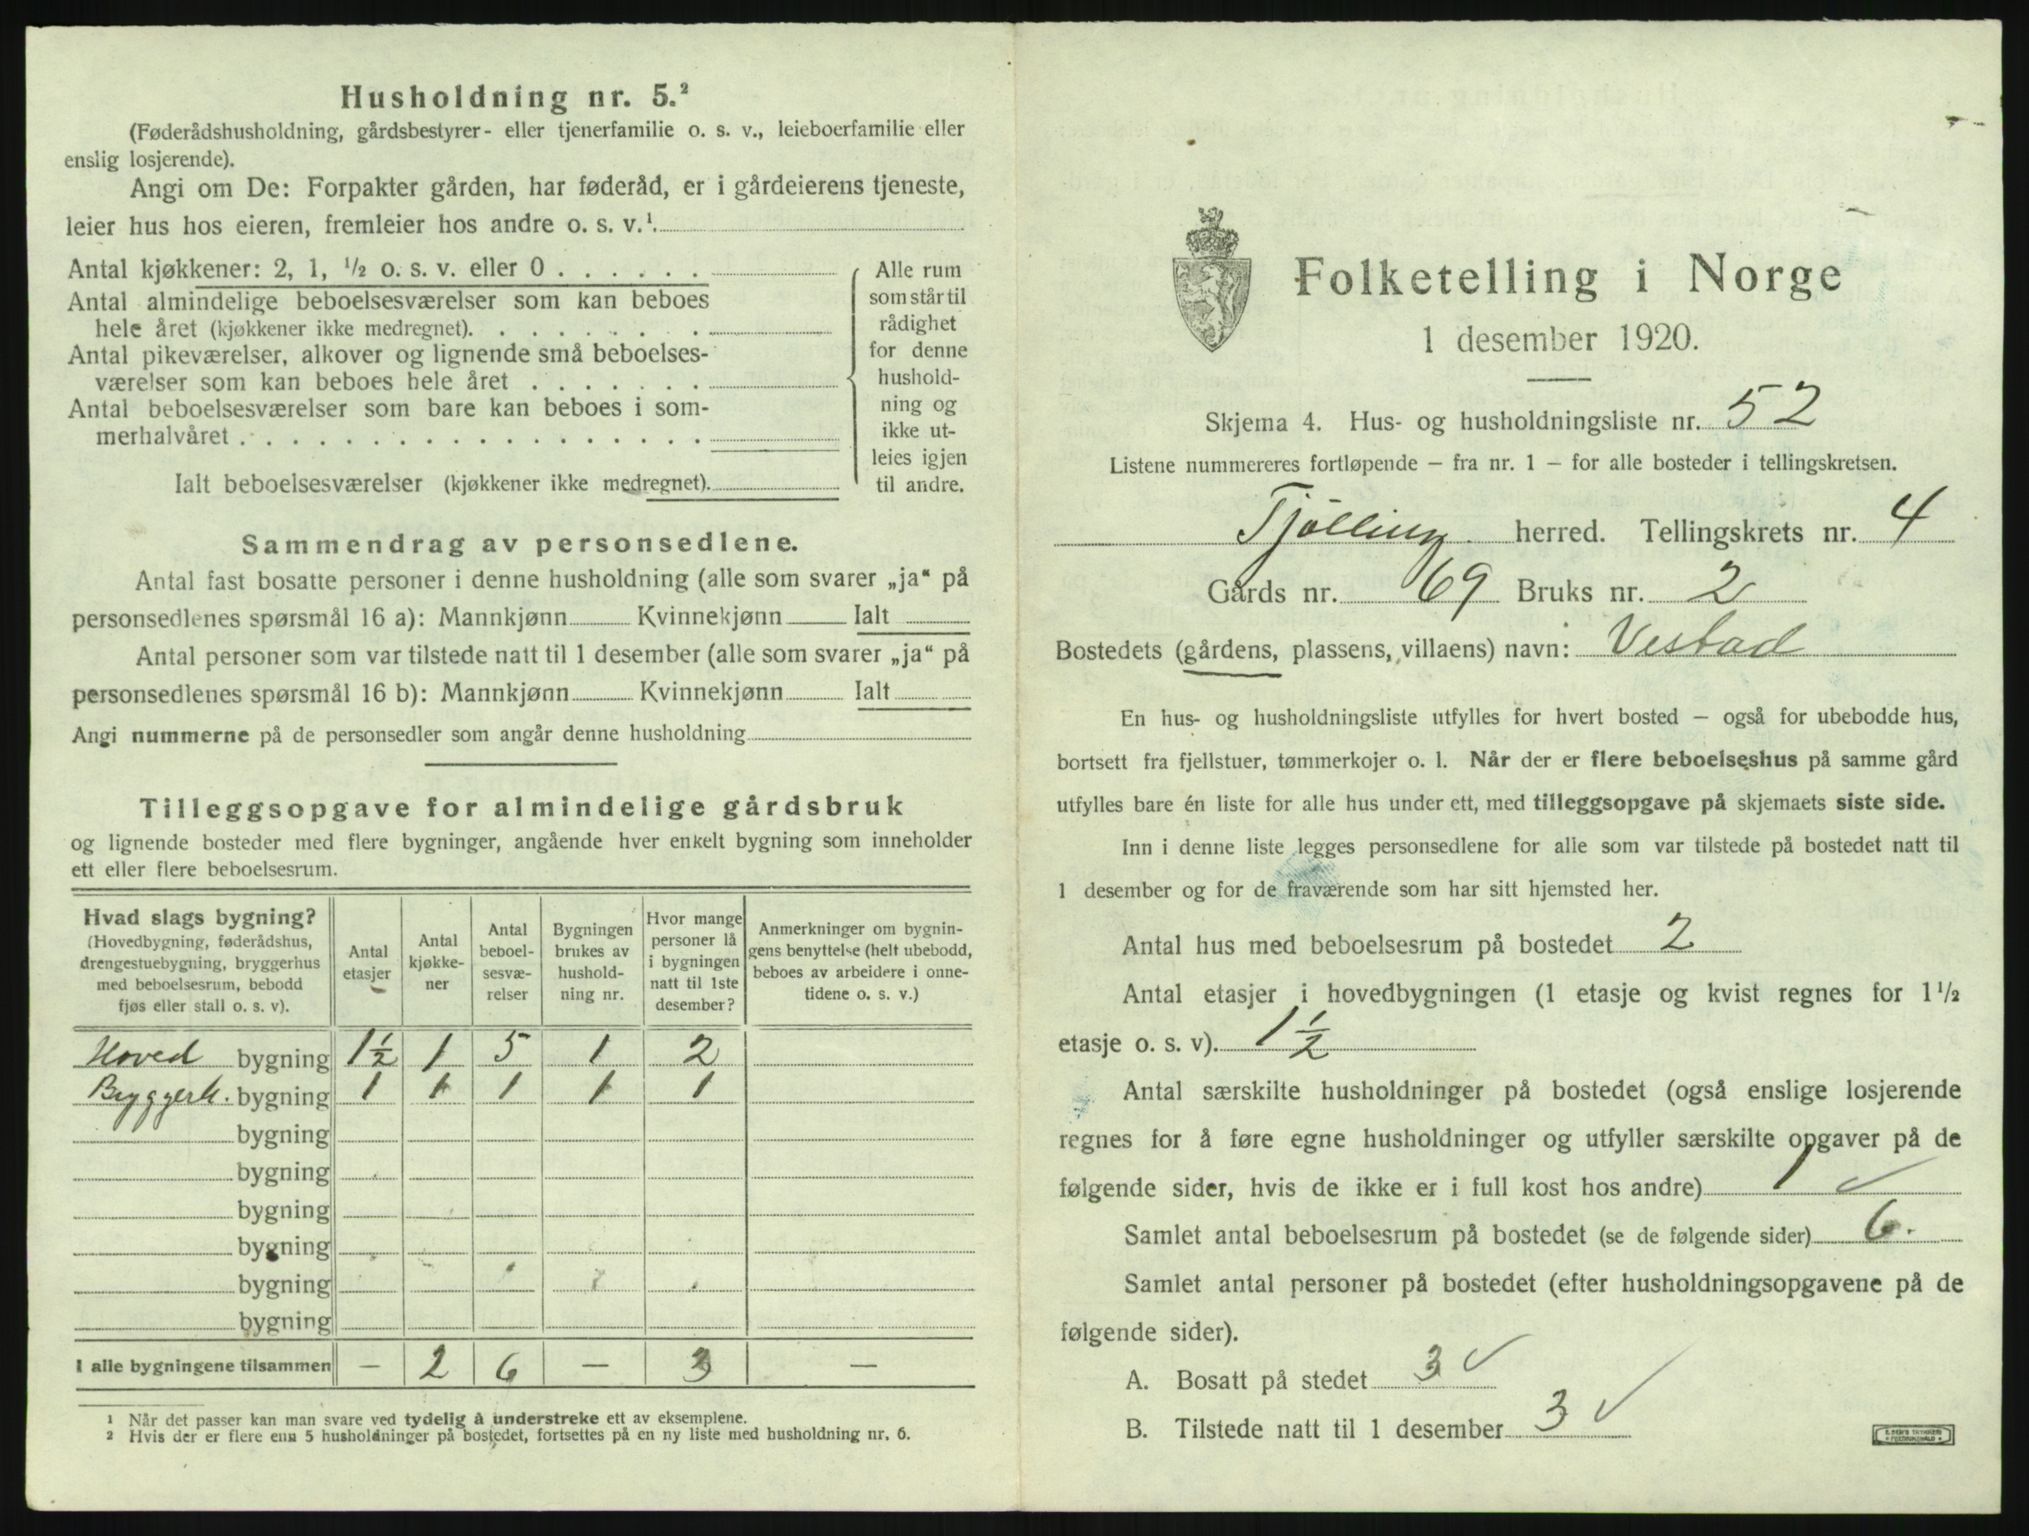 Husholdning nr. 5.²
(Føderådshusholdning, gårdsbestyrer- eller tjenerfamilie o. s. v., leieboerfamilie eller
enslig losjerende).
Angi om De: Forpakter gården, har føderåd, er i gårdeierens tjeneste,
leier hus hos eieren, fremleier hos andre o. s. v.¹.
Antal kjøkkener: 2, 1, ½ o. s. v. eller 0 . . . . . .
Antal almindelige beboelsesværelser som kan beboes
hele året (kjøkkener ikke medregnet). . . . . . . .
Antal pikeværelser, alkover og lignende små beboelses-
værelser som kan beboes hele året . . . . . . .
Antal beboelsesværelser som bare kan beboes i som-
merhalvåret . . . . . . . . . . . . . . . . . .
Alle rum
som står til
rådighet
for denne
hushold-
ning og
ikke ut-
leies igjen
til andre.
Ialt beboelsesværelser (kjøkkener ikke medregnet).
Sammendrag av personsedlene.
Antal fast bosatte personer i denne husholdning (alle som svarer „ja“ på
personsedlenes spørsmål 16 a): Mannkjønn Kvinnekjønn Ialt
Antal personer som var tilstede natt til 1 desember (alle som svarer „ja“ på
personsedlenes spørsmål 16 b): Mannkjønn Kvinnekjønn Ialt
Angi nummerne på de personsedler som angår denne husholdning
Tilleggsopgave for almindelige gårdsbruk
og lignende bosteder med flere bygninger, angående hver enkelt bygning som inneholder
ett eller flere beboelsesrum.
Hvad slags bygning?
(Hovedbygning, føderådshus,
drengestuebygning, bryggerhus
med beboelsesrum, bebodd
fjøs eller stall o. s. v).
Antal
etasjer
Antal
kjøkke-
ner
Antal
beboel-
sesvæ-
relser
Bygningen
brukes av
hushold-
ning nr.
Hvor mange
personer lå
i bygningen
natt til 1ste
desember?
Anmerkninger om bygnin-
gens benyttelse (helt ubebodd,
beboes av arbeidere i onne-
tidene o. s. v.)
Hoved bygning 1½ 1 5 1 2
Bryggerh. bygning 1 1 1 1 1
bygning
bygning
bygning
bygning
bygning
bygning
I alle bygningene tilsammen — 2 6 — 3 —
¹ Når det passer kan man svare ved tydelig å understreke ett av eksemplene.
² Hvis der er flere enn 5 husholdninger på bostedet, fortsettes på en ny liste med husholdning nr. 6.
Folketelling i Norge
1 desember 1920.
Skjema 4. Hus- og husholdningsliste nr. 52
Listene nummereres fortløpende — fra nr. 1 — for alle bosteder i tellingskretsen.
Tjölling herred. Tellingskrets nr. 4
Gårds nr. 69 Bruks nr. 2
Bostedets (gårdens, plassens, villaens) navn: Vestad
En hus- og husholdningsliste utfylles for hvert bosted — også for ubebodde hus,
bortsett fra fjellstuer, tømmerkojer o. l. Når der er flere beboelseshus på samme gård
utfylles bare én liste for alle hus under ett, med tilleggsopgave på skjemaets siste side.
Inn i denne liste legges personsedlene for alle som var tilstede på bostedet natt til
1 desember og for de fraværende som har sitt hjemsted her.
Antal hus med beboelsesrum på bostedet 2
Antal etasjer i hovedbygningen (1 etasje og kvist regnes for 1½
etasje o. s. v). 1½
Antal særskilte husholdninger på bostedet (også enslige losjerende
regnes for å føre egne husholdninger og utfyller særskilte opgaver på de
følgende sider, hvis de ikke er i full kost hos andre) 1 ✓
Samlet antal beboelsesrum på bostedet (se de følgende sider) 6.
Samlet antal personer på bostedet (efter husholdningsopgavene på de
følgende sider).
A. Bosatt på stedet 3 ✓
B. Tilstede natt til 1 desember 3 ✓